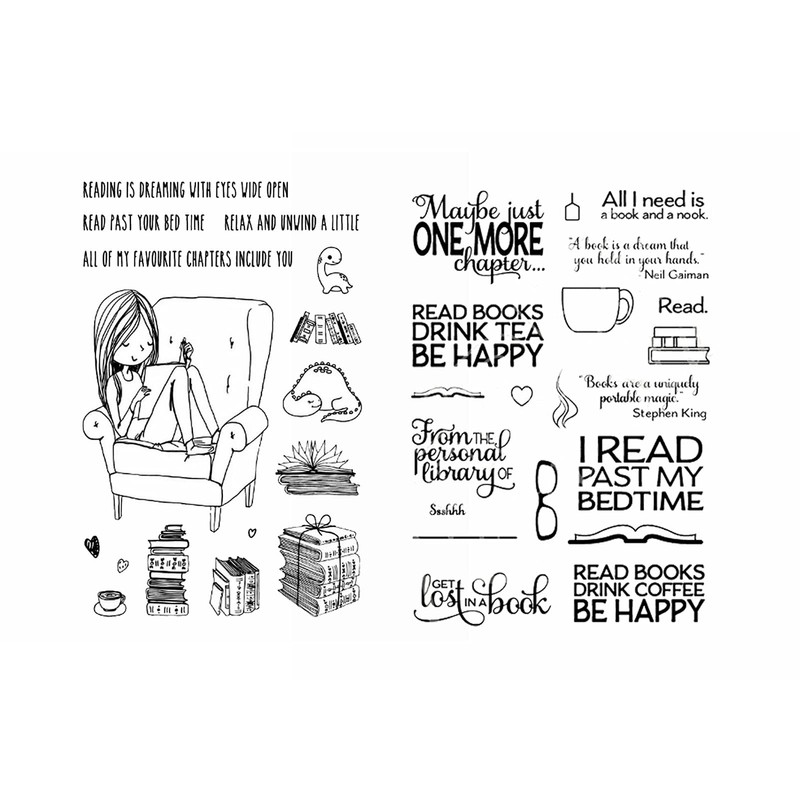 READING IS DREAMING WITH EYES WIDE OPEN
READ PAST YOUR BED TIME
RELAX AND UNWIND A LITTLE
ALL OF MY FAVOURITE CHAPTERS INCLUDE YOU
Maybe just
ONE MORE
chapter...
READ BOOKS
DRINK TEA
BE HAPPY
From THE
personal
library OF
Ssshhh
GET
lost IN A book
All I need is
a book and a nook.
"A book is a dream that
you hold in your hands."
- Neil Gaiman
Read.
"Books are a uniquely
portable magic."
Stephen King
I READ
PAST MY
BEDTIME
READ BOOKS
DRINK COFFEE
BE HAPPY